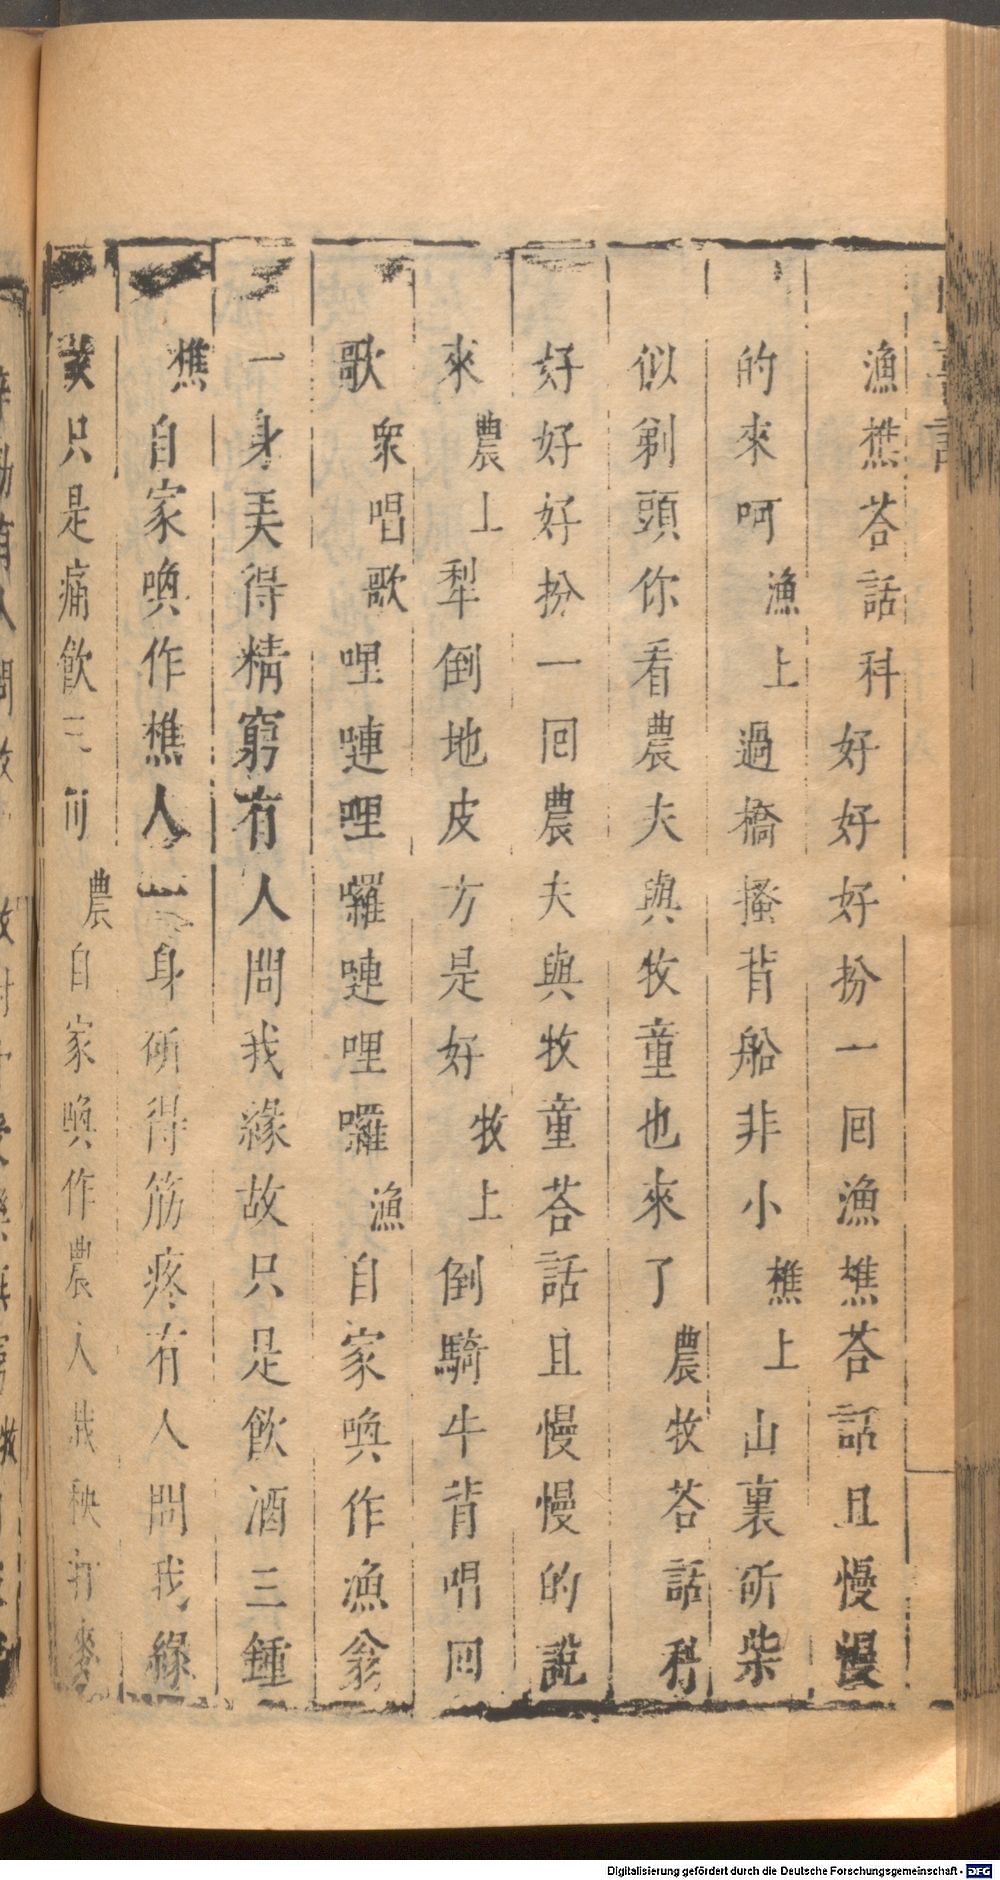 漁樵荅話科好好好扮一回漁樵荅話且慢慢
的來呵漁上過橋搔背船非小樵上山裏斫柴
似剃頭你看農夫與牧童也來了農牧荅話科
好好好扮一回農夫與牧童荅話且慢慢的說
來農上犁倒地皮方是好牧上倒騎牛背唱回
歌衆唱歌哩嗹哩囉嗹哩囉漁自家喚作漁翁
一身美得精窮有人問我緣故只是飲酒三鍾
樵自家喚作樵人一身斫得筋疼有人問我緣
只是痛飲三 農自家喚作農人栽秧打麥
Digitalisierung gefördert durch die Deutsche Forschungsgemeinschaft - DFG